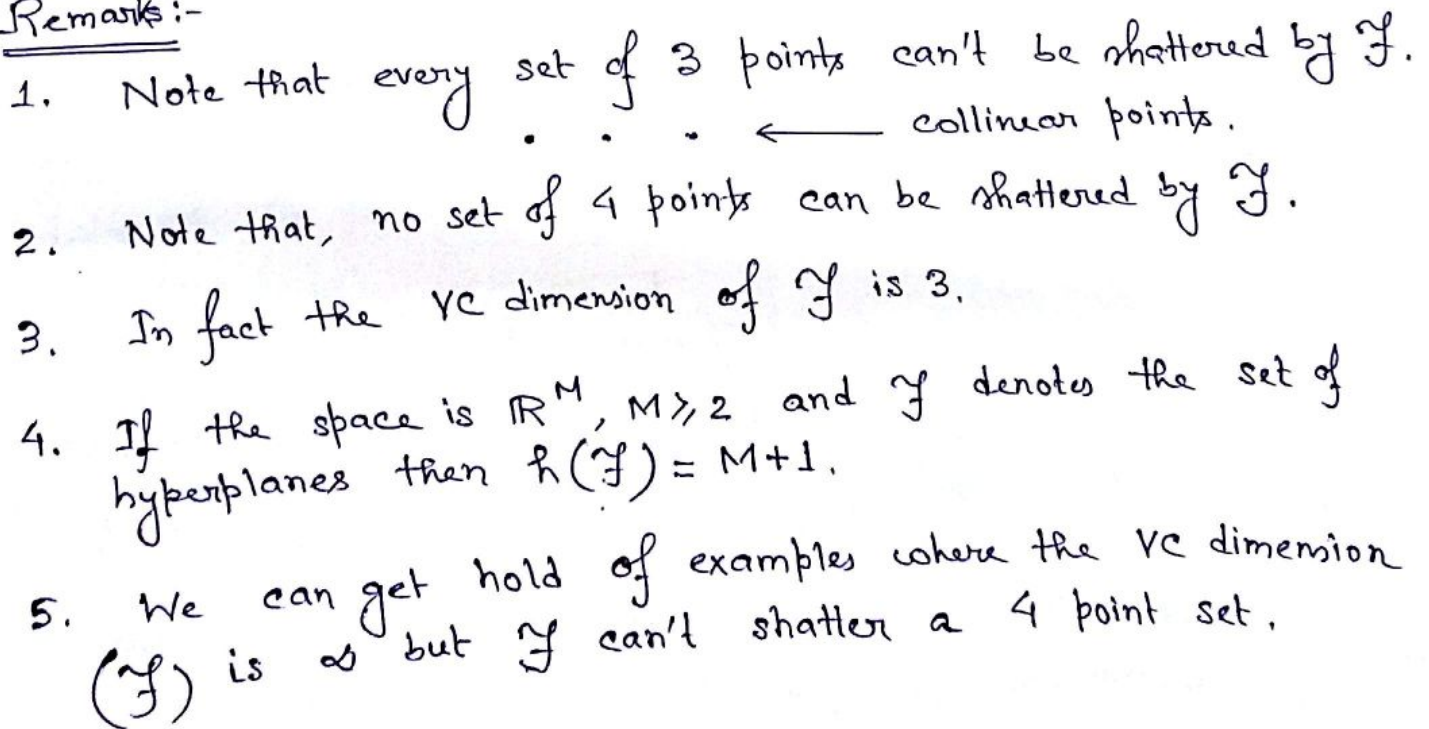 Remarks :-
1. Note that every set of 3 points can't be shattered by ℱ.
. . . ← collinear points.
2. Note that, no set of 4 points can be shattered by ℱ.
3. In fact the VC dimension of ℱ is 3.
4. If the space is ℝ^M, M ≥ 2 and ℱ denotes the set of
hyperplanes then h(ℱ) = M+1.
5. We can get hold of examples where the VC dimension
(ℱ) is ∞ but ℱ can't shatter a 4 point set.